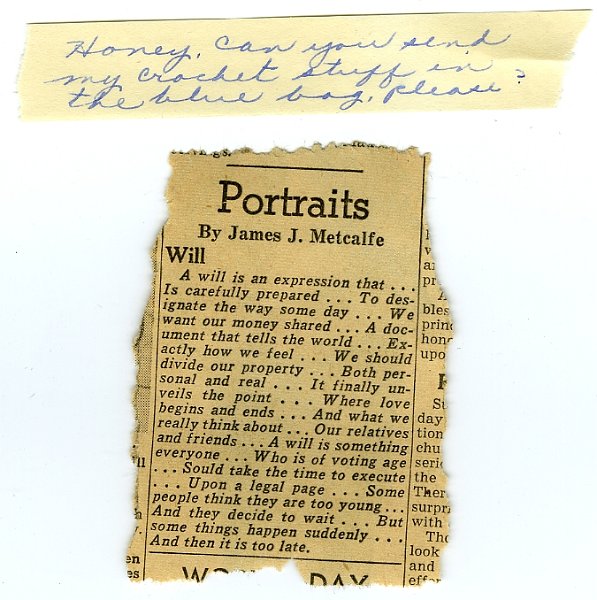 Honey, can you send
my crochet stuff in
the blue bag, please?
Portraits
By James J. Metcalfe
Will
A will is an expression that . . .
Is carefully prepared . . . To des-
ignate the way some day . . . We
want our money shared . . . A doc-
ument that tells the world . . . Ex-
actly how we feel . . . We should
divide our property . . . Both per-
sonal and real . . . It finally un-
veils the point . . . Where love
begins and ends . . . And what we
really think about . . . Our relatives
and friends . . . A will is something
everyone . . . Who is of voting age
. . . Sould take the time to execute
. . . Upon a legal page . . . Some
people think they are too young . . .
And they decide to wait . . . But
some things happen suddenly . . .
And then it is too late.
DAY
bles
princ
hono
upo
day
tion
chu
seri
the
Ther
surpri
with
Tho
look
and
effor